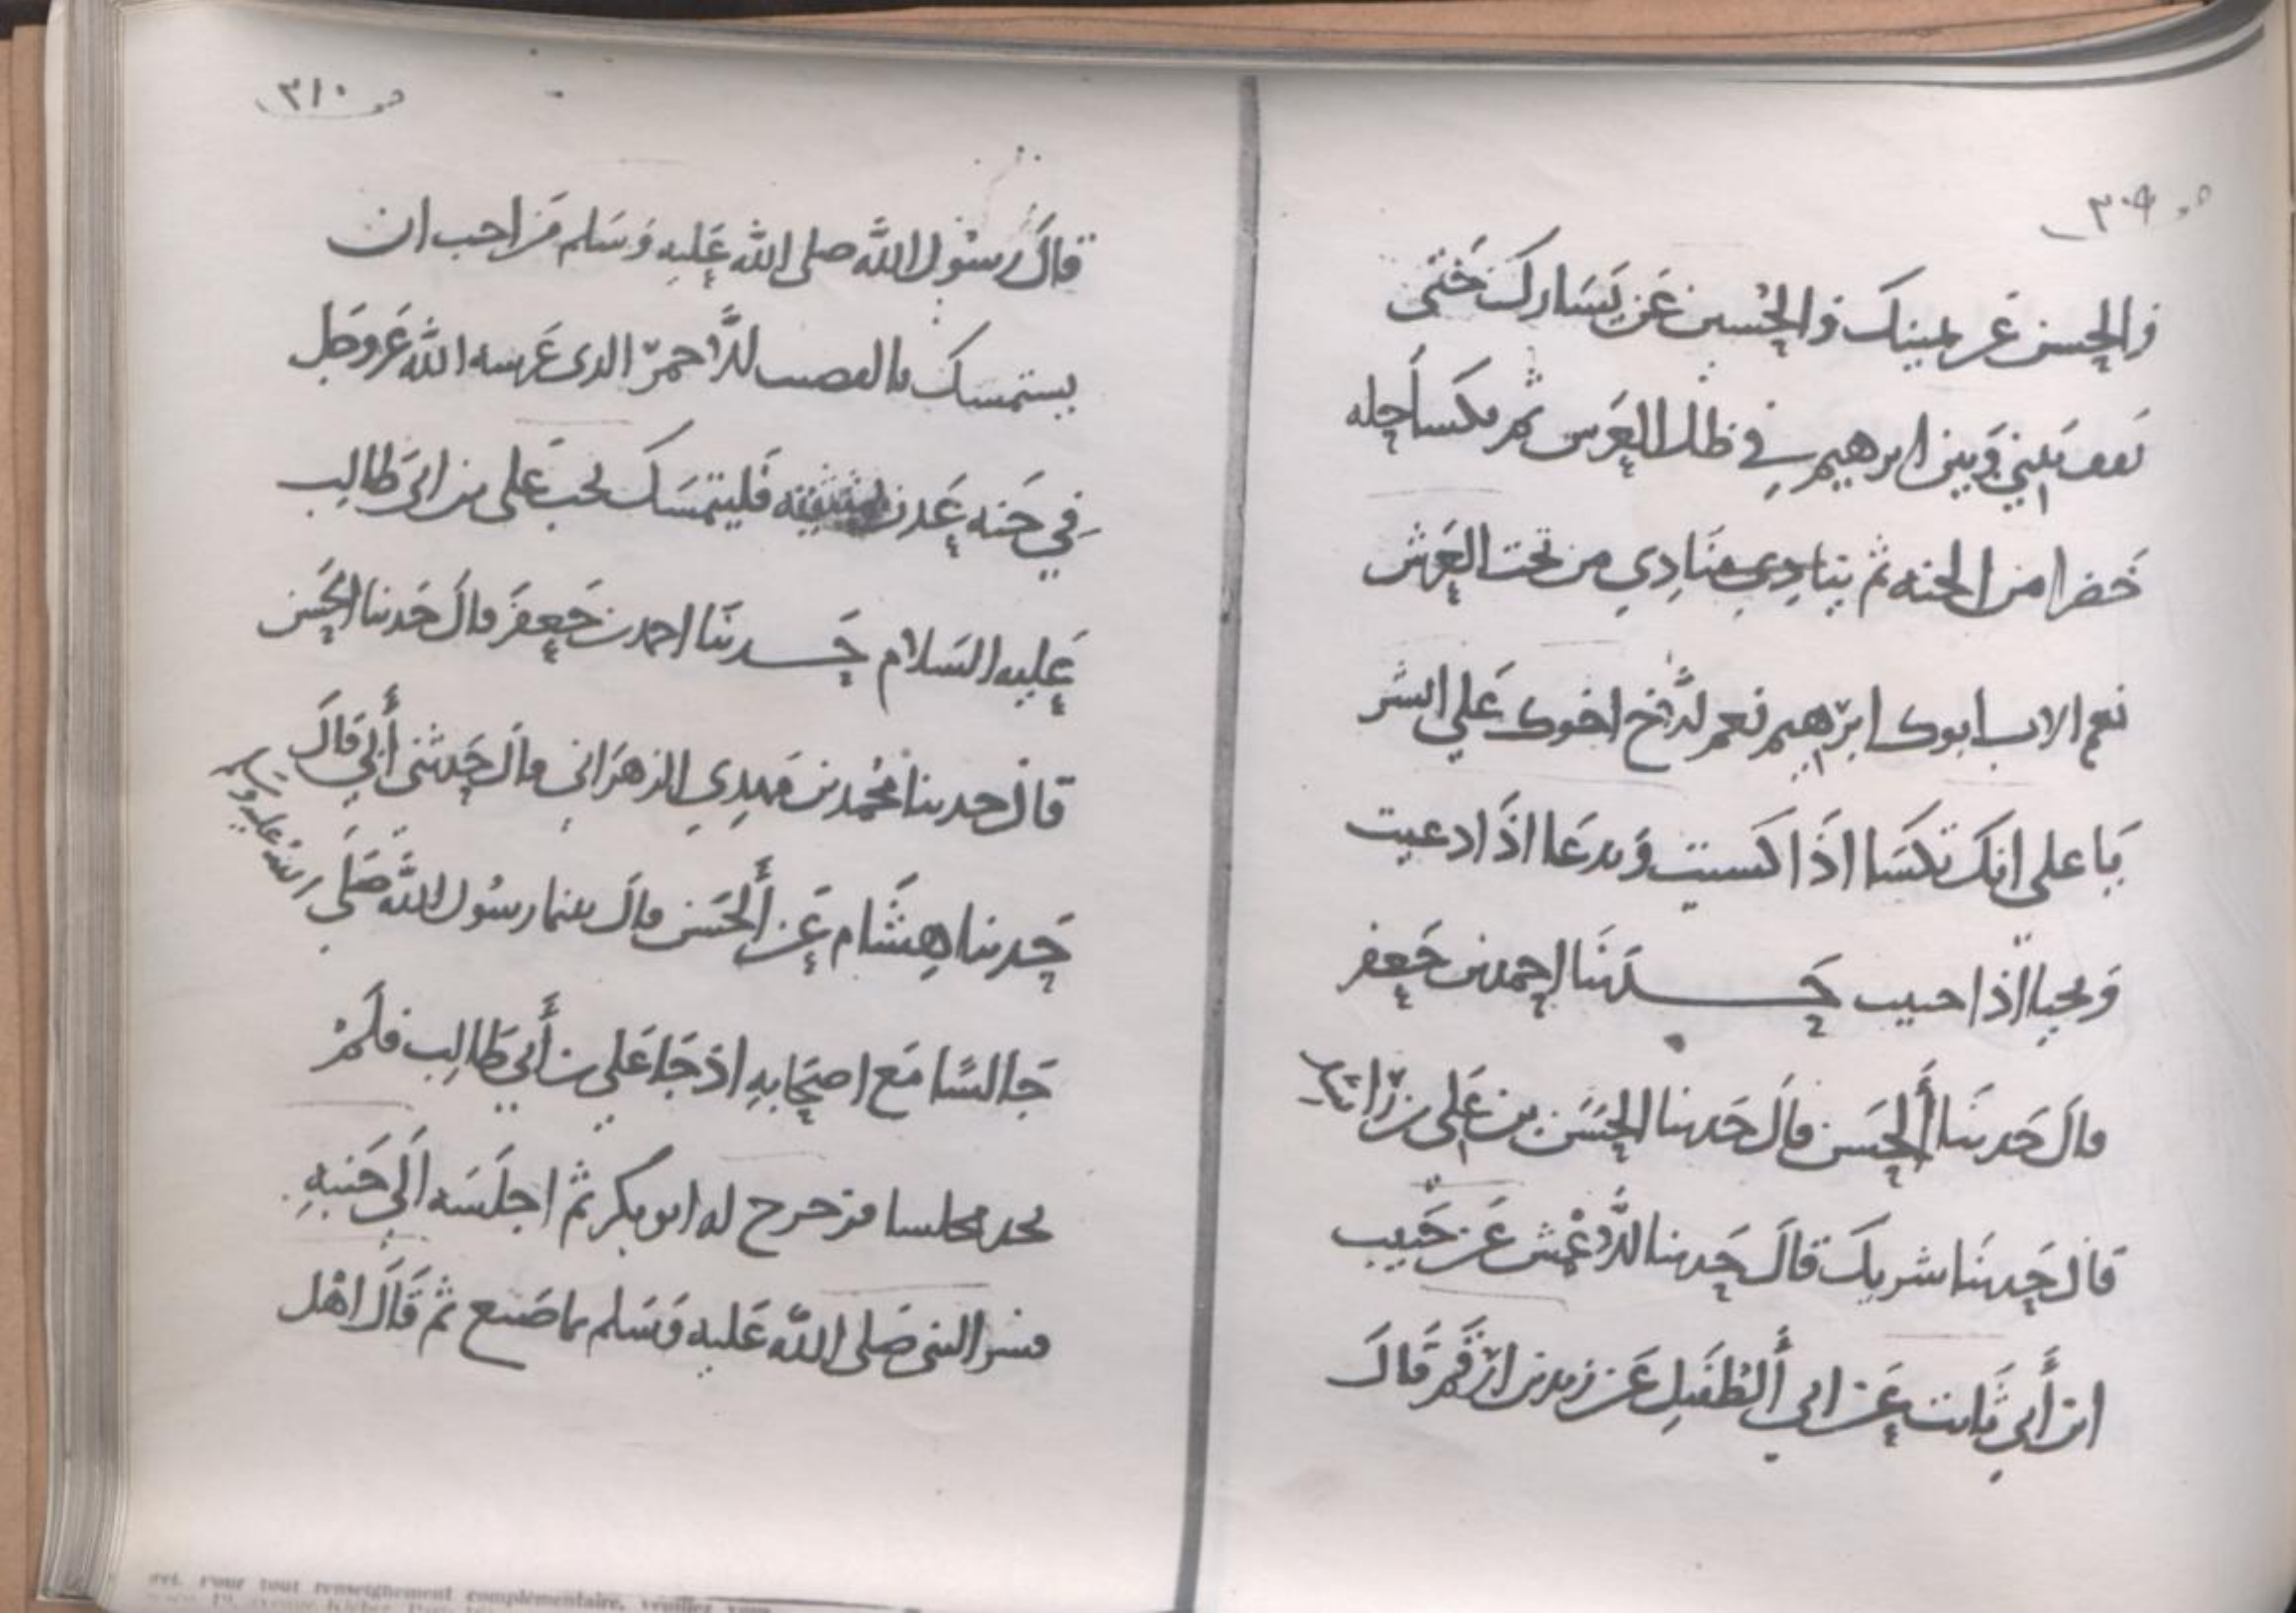 ٣٠٩
والحسن عن يمينك والحسين عن يسارك حتى
تقف بيني وبين ابرهيم في ظل العرش ثم تكسا حله
خضرا من الجنه ثم ينادي منادي من تحت العرش
نعم الاب ابوك ابرهيم نعم الاخ اخوك علي ابشر
يا علي انك تكسا اذا كسيت وتدعا اذا دعيت
وتحيا اذا حييت حدثنا احمد بن جعفر
قال حدثنا الحسن قال حدثنا الحسن بن علي بن راشد
قال حدثنا شريك قال حدثنا الاعمش عن حبيب
ابن أبي ثابت عن ابي الطفيل عن زيد بن ارقم قال
٣١٠
قال رسول الله صلى الله عليه وسلم من احب ان
يستمسك بالقضيب الاحمر الذي غرسه الله عز وجل
في جنه عدن بيمينه فليتمسك بحب علي بن ابي طالب
عليه السلام حدثنا احمد بن جعفر قال حدثنا الحسن
قال حدثنا محمد بن مهدي الزهراني قال حدثني أبي قال
حدثنا هشام عن الحسن قال بينما رسول الله صلى الله عليه وسلم
جالسا مع اصحابه اذ جا علي بن أبي طالب فلم
يجد مجلسا فزحزح له ابو بكر ثم اجلسه الى جنبه
فسر النبي صلى الله عليه وسلم بما صنع ثم قال اهل
ret. Pour tout renseignement complémentaire, veuillez vous